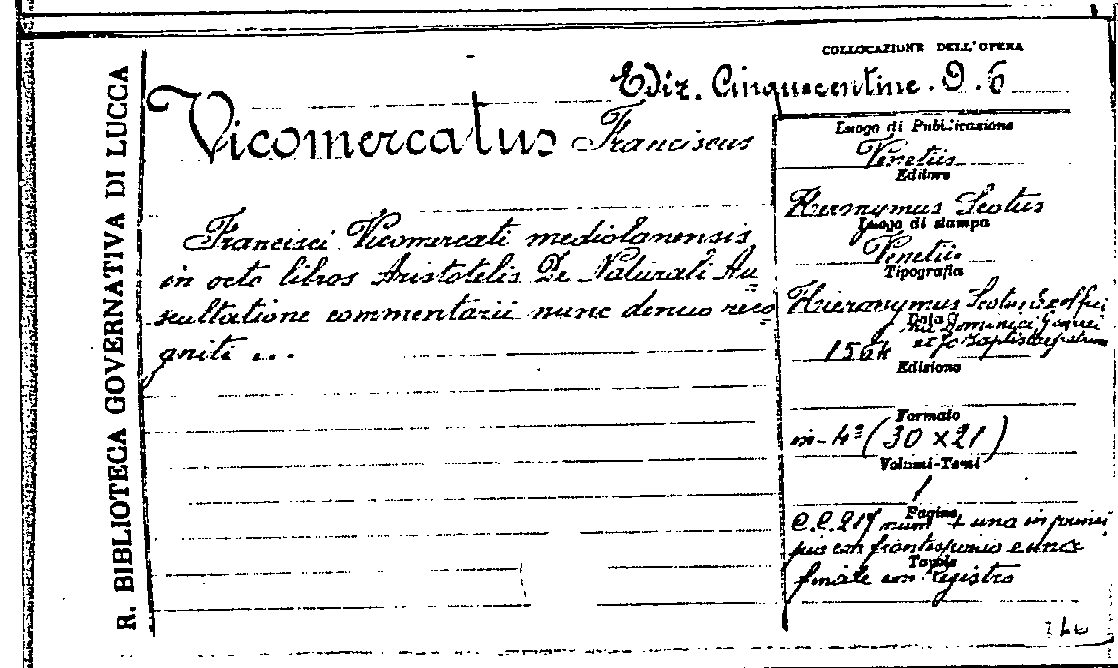 R. BIBLIOTECA GOVERNATIVA DI LUCCA
COLLOCAZIONE DELL'OPERA
Ediz. Cinquecentine. D. 6
Vicomercatus Franciscus
Francisci Vicomercati mediolanensis
in octo libros Aristotelis De Naturali Au
scultatione commentarii nunc denuo reco
gniti ...
Luogo di Pubblicazione
Venetiis
Editore
Hieronymus Scotus
Luogo di stampa
Venetiis
Tipografia
Hieronymus Scotus
Data
1564
Edizione
Formato
in-4º (30 x 21)
Volumi-Tomi
1
Pagine
C.C. 217 num + una in princi
pio con frontespizio e una
Tavole
finale con registro